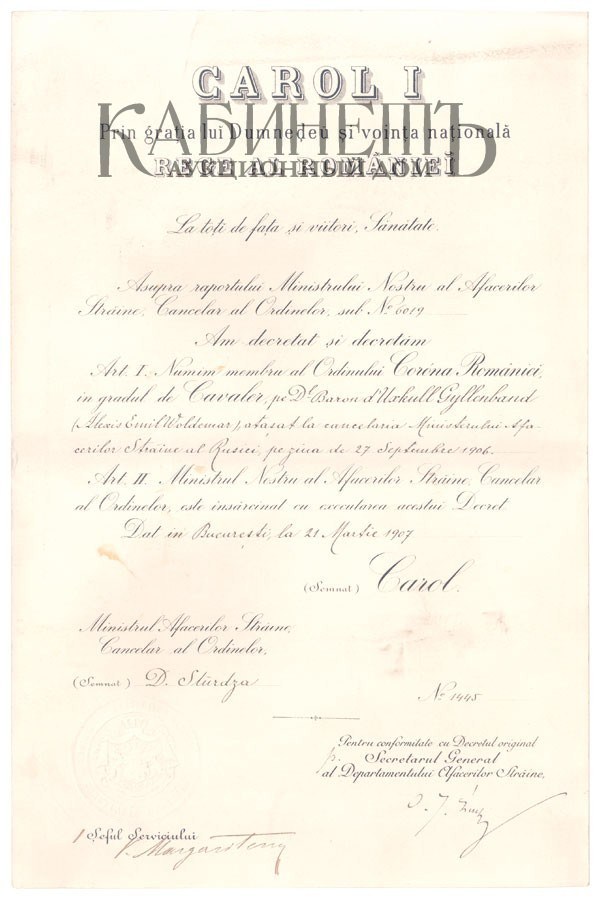 CAROL I
КАБИНЕТЪ
Prin grația lui Dumnedeŭ și voința națională
REGE AL ROMÂNIEĬ
АУКЦИОННЫЙ ДОМ
La toți de față și viitori, Sănătate.
Asupra raportului Ministrului Nostru al Afacerilor
Străine, Cancelar al Ordinelor, sub No 6019
Am decretat și decretăm
Art. I. Numim membru al Ordinului Coróna Româniéi,
in gradul de Cavaler, pe Dl Baron d'Uxkull Gyllenband
(Alexis Emil Woldemar), atașat la cancelaria Ministerului Afa-
cerilor Străine al Rusiei, pe ziua de 27 Septembre 1906.
Art. II. Ministrul Nostru al Afacerilor Străine, Cancelar
al Ordinelor, este însărcinat cu executarea acestui Decret.
Dat in București, la 21 Martie 1907
(Semnat) Carol.
Ministrul Afacerilor Străine,
Cancelar al Ordinelor,
(Semnat) D. Sturdza
No 1445
Pentru conformitate cu Decretul original
p. Secretarul General
al Departamentului Afacerilor Străine,
Șeful Serviciului